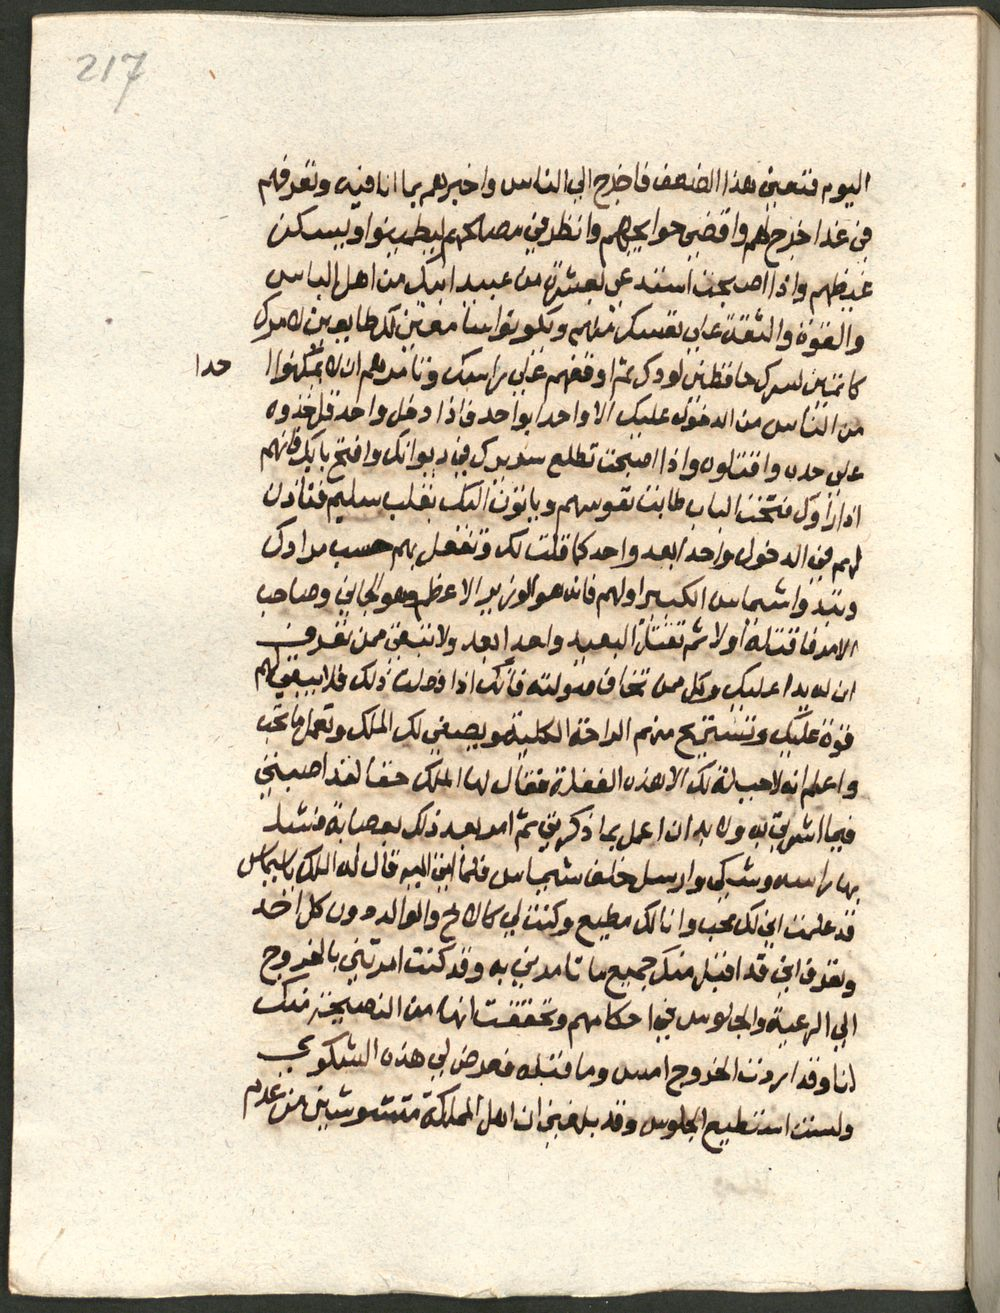 217
اليوم فتعبني هذا الضعف فاخرج الي الناس واخبرهم بما انا فيه وتعرفهم
في غدا اخرج لهم واقضي حوايجهم وانظر في مصالحهم ليطمينوا ويسكن
غيظهم واذا اصبحت استدعي لعشرة من عبيد ابيك من اهل الباس
والقوة والثقة علي نفسك منهم ويكونوا سامعين لك طايعين لامرك
كاتمين لسرك حافظين لودك ثم اوقفهم علي راسك وتامرهم ان لا يمكنوا احدا
من الناس من الدخول عليك الا واحدا بواحد فاذا دخل واحد قل خذوه
علي حده واقتلوه واذا اصبحت تطلع سريرك في ديوانك وافتح بابك فانهم
اذا راوك فتحت الباب طابت نفوسهم وياتون اليك بقلب سليم فتاذن
لهم في الدخول واحدا بعد واحد كما قلت لك وتفعل بهم حسب مرادك
وتبدوا شماس الكبير اولهم فانه هو الوزير الاعظم وهو الجاني وصاحب
الامر فاقتله اولا ثم تقتل البعيد واحدا بعد ولا تبقي ممن تعرف
ان له يدا عليك وكل من تخاف صولته فانك اذا فعلت ذلك فلا يبقي لهم
قوة عليك وتستريح منهم الراحة الكلية ويصفي لك الملك وتعمل ما تحب
واعلم انه لا حيلة لك الا هذه الفعلة فقال لها الملك حقا لقد اصبتي
فيما اشرتي به ولا بد ان اعمل بما ذكرتي ثم امر بعد ذلك بعصابة فشد
بها راسه وشكي وارسل خلف شماس فلما اتي اليه قال له الملك يا شماس
قد علمت اني لك محب وانا لك مطيع وكنت لي كالاخ والوالد دون كل احد
وتعرف اني قد اقبل منك جميع ما تامرني به وقد كنت امرتني بالخروج
الي الرعية والجلوس في احكامهم وتحققت انها من النصيحة منك
انا وقد اردت الخروج امس وما قبله فعرض لي هذه الشكوي
ولست استطيع الجلوس وقد بلغني ان اهل المملكة متشوشين من عدم